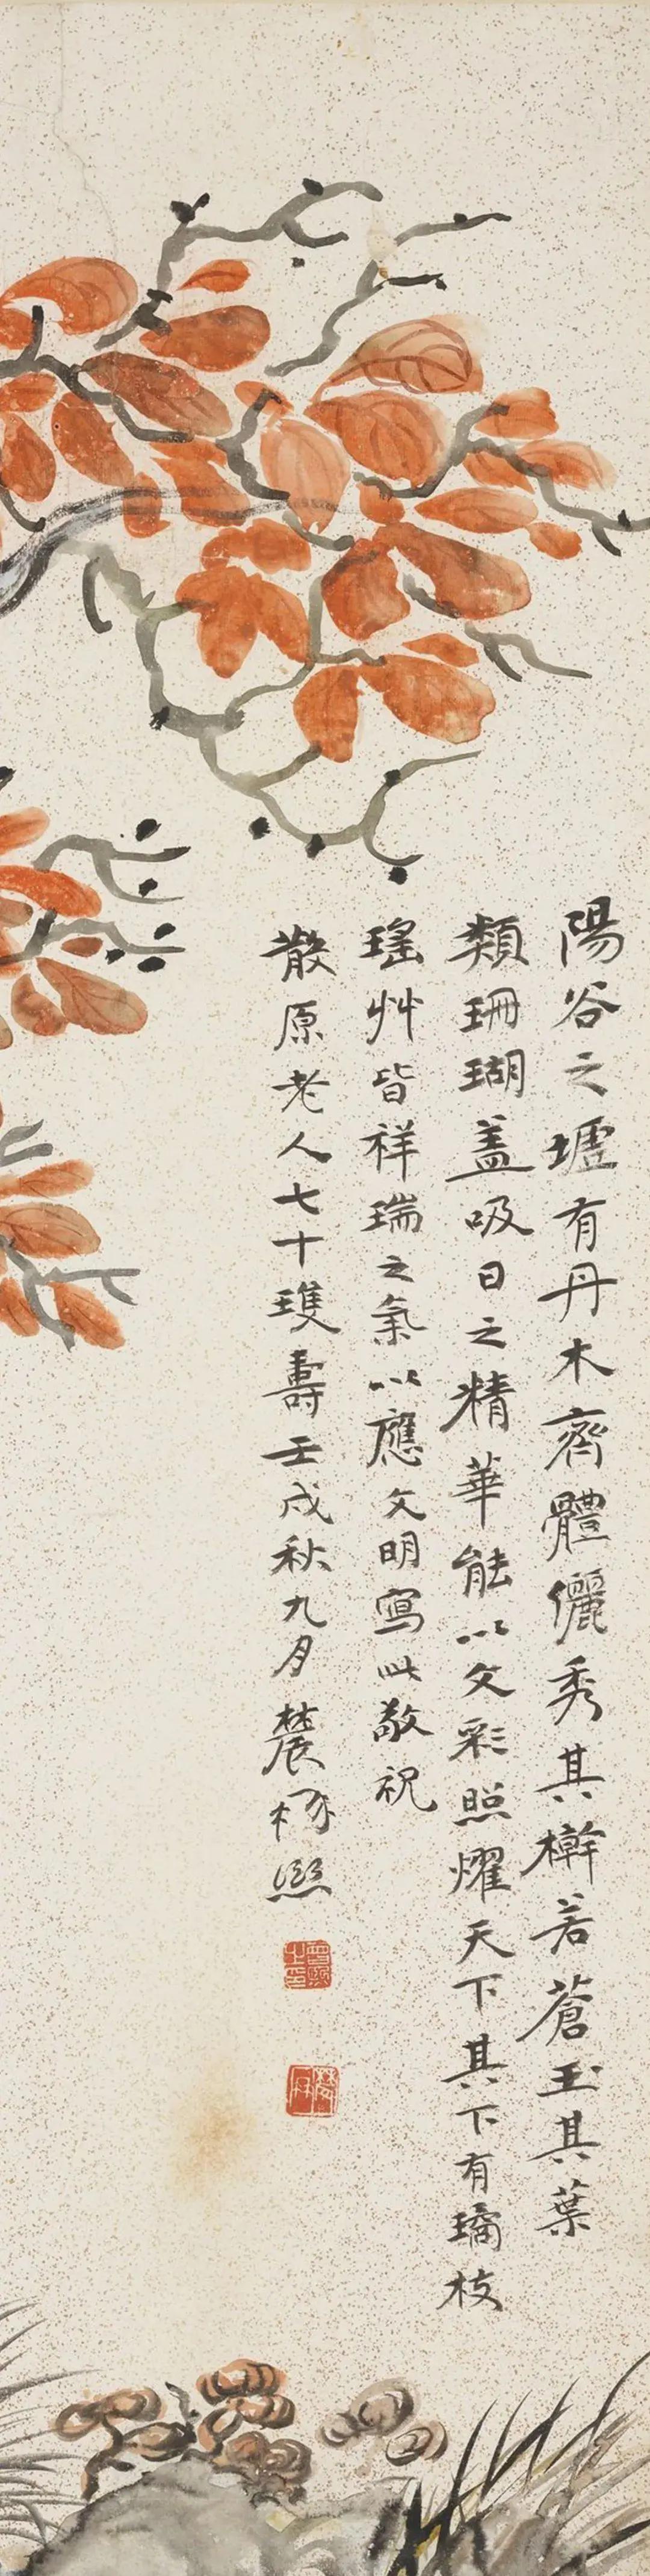 陽谷之墟有丹木齊體儷秀其檊若蒼玉其葉
類珊瑚蓋吸日之精華能以文彩照燿天下其下有璚枝
瑤艸皆祥瑞之氣以應文明寫此敬祝
散原老人七十雙壽壬戌秋九月農髯熙
曾熙之印
農髯